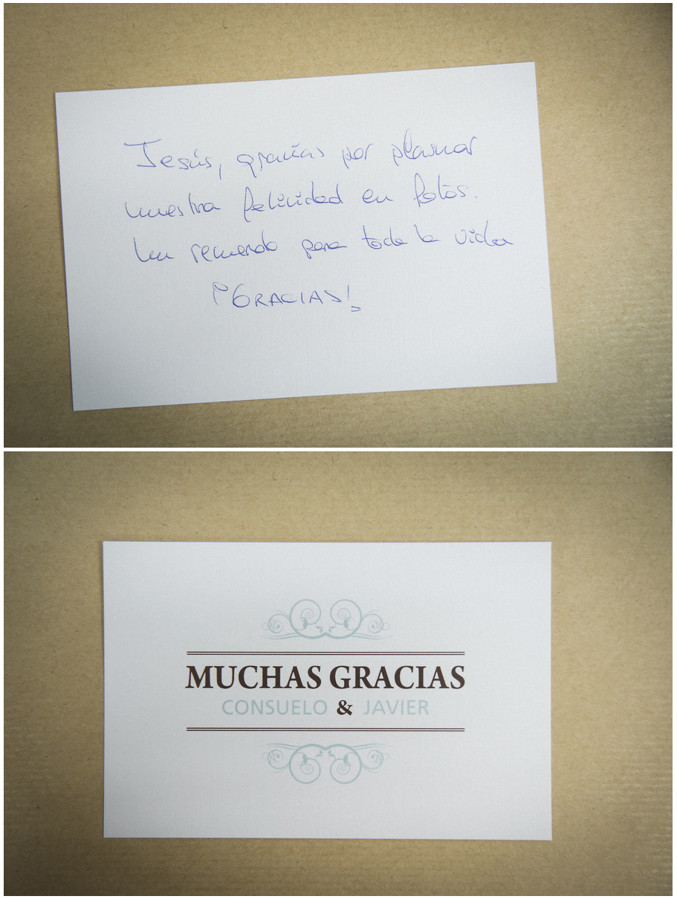 Jesús, gracias por plasmar
nuestra felicidad en fotos.
Un recuerdo para toda la vida
¡GRACIAS!
MUCHAS GRACIAS
CONSUELO & JAVIER